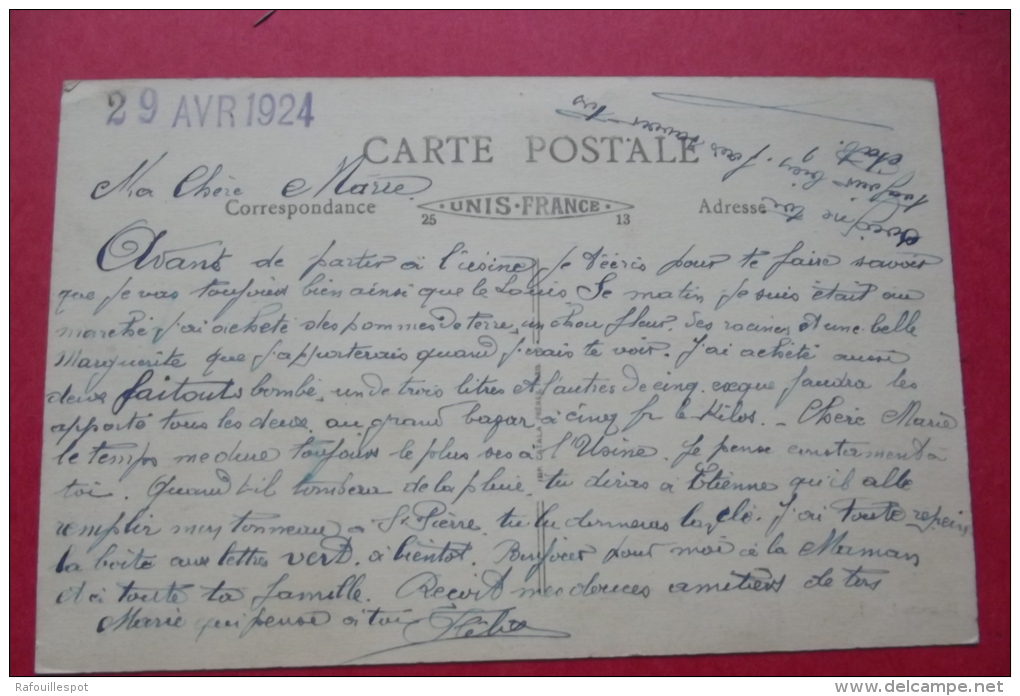 29 AVR 1924
CARTE POSTALE
Ma Chère Marie
Correspondance
25 UNIS·FRANCE 13
Adresse
Avant de partir à l'usine je t'écris pour te faire savoir
que je vas toujours bien ainsi que le Louis Se matin je suis était au
marché j'ai acheté des pommes de terre, un chou fleur. des racines et une belle
Marguerite que j'apporterais quand j'irais te voir. J'ai acheté aussi
deux faitouts bombé, un de trois litres et l'autres de cinq. faudra les
apporté tous les deux au grand bazar à cinq fr le Kilos. - Chère Marie
le temps me dure toujours le plus à l'Usine. Je pense constament à
toi. Quand t-il tombera de la pluie tu diras à Etienne qu'il alle
remplir mon tonneau à St Pierre tu lu donneras la clé. J'ai toute repeins
la boite aux lettres vert. à bientot. pour moi à la Maman
et à toute ta famille. Reçoit mes douces amitiers de ton
Marie qui pense à toi
Rafouillespot
www.delcampe.net